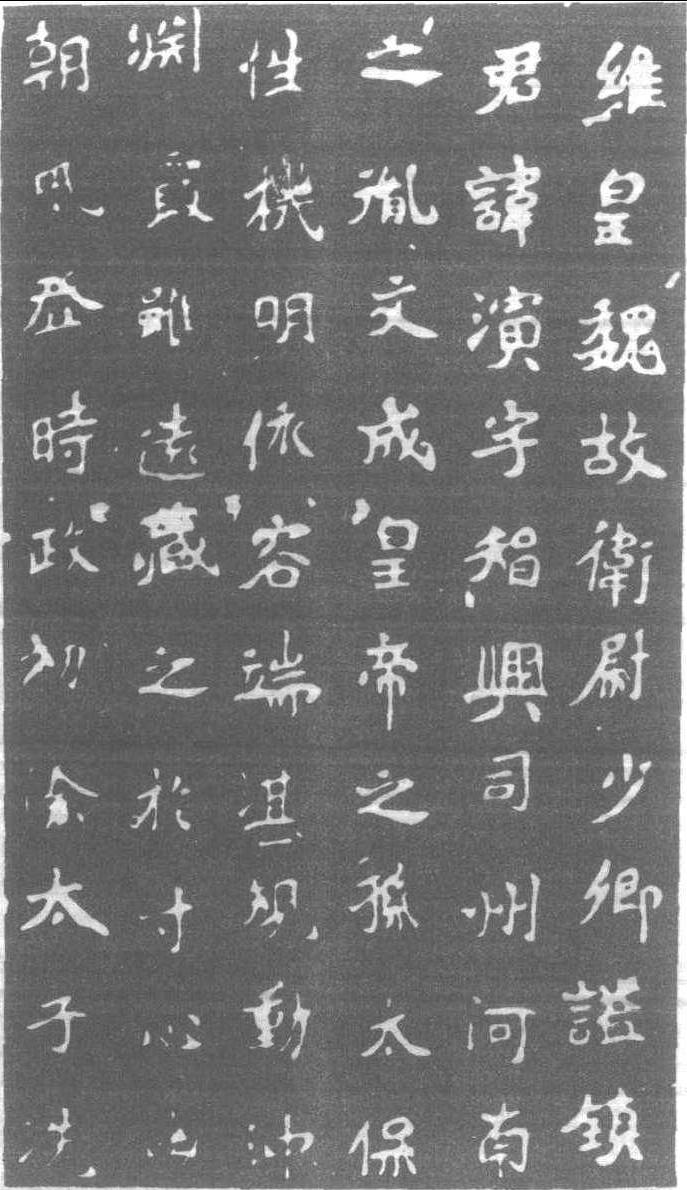 維皇魏故衛尉少卿謚鎮
君諱演字智興司州河南
之胤文成皇帝之孫太保
性機明依容端湛規動沖
淵叚雖遠藏之於寸心之
朝民恭時政初除太子洗